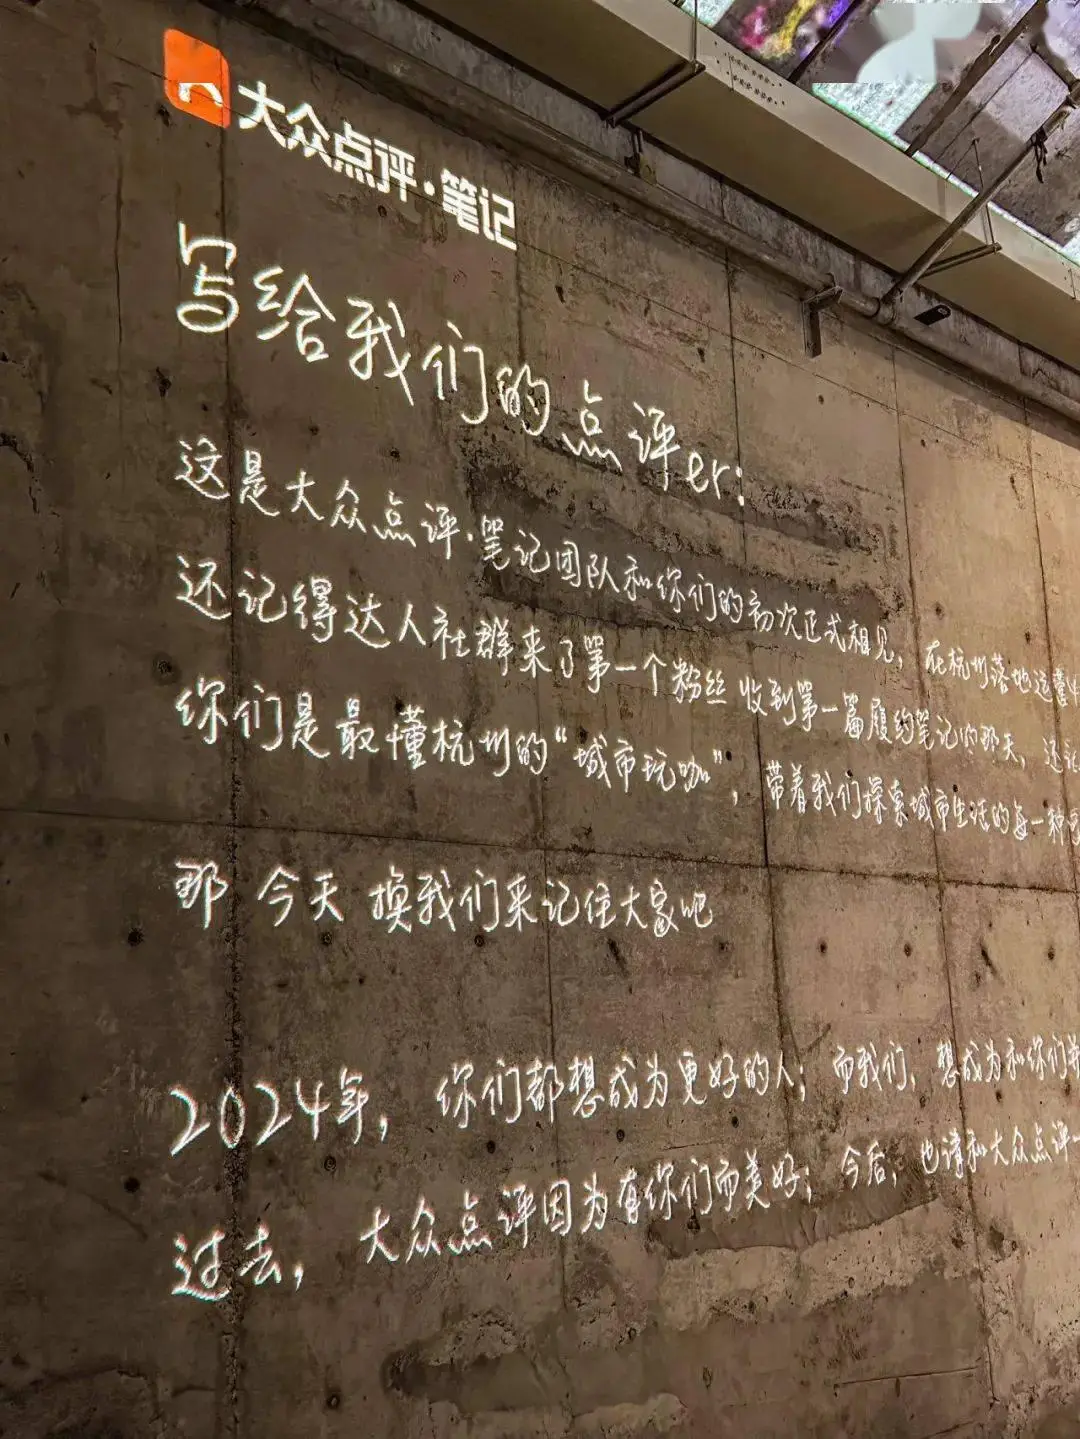 大众点评·笔记
写给我们的点评er:
这是大众点评·笔记团队和你们的初次正式相见，在杭州落地运营
还记得达人社群来了第一个粉丝 收到第一篇履约笔记的那天，还记
你们是最懂杭州的“城市玩咖”，带着我们探索城市生活的每一种
那 今天 换我们来记住大家吧
2024年，你们都想成为更好的人；而我们，想成为和你们
过去，大众点评因为有你们而美好；今后，也请和大众点评一